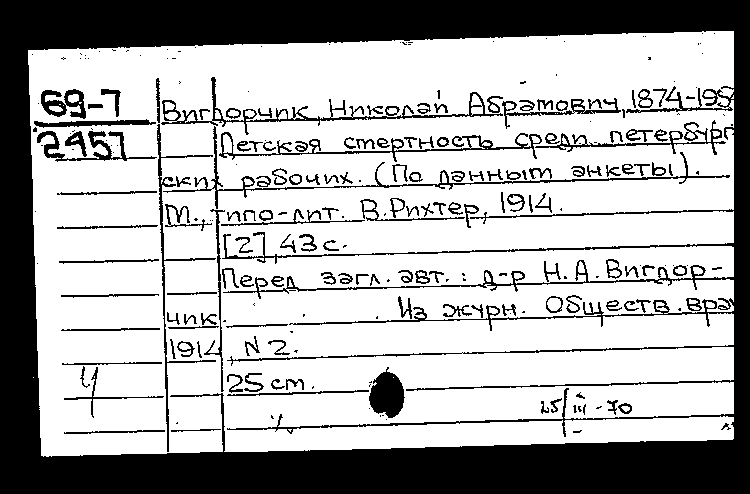 69-7
2457
Вигдорчик, Николай Абрамович, 1874-195
Детская смертность среди петербург
ских рабочих. (По данным анкеты).
М., типо-лит. В.Рихтер, 1914.
[2], 43 с.
Перед загл. авт.: д-р Н.А.Вигдор-
чик. Из журн. Обществ. врач
1914, N 2.
25 см.
Ч
25/III-70